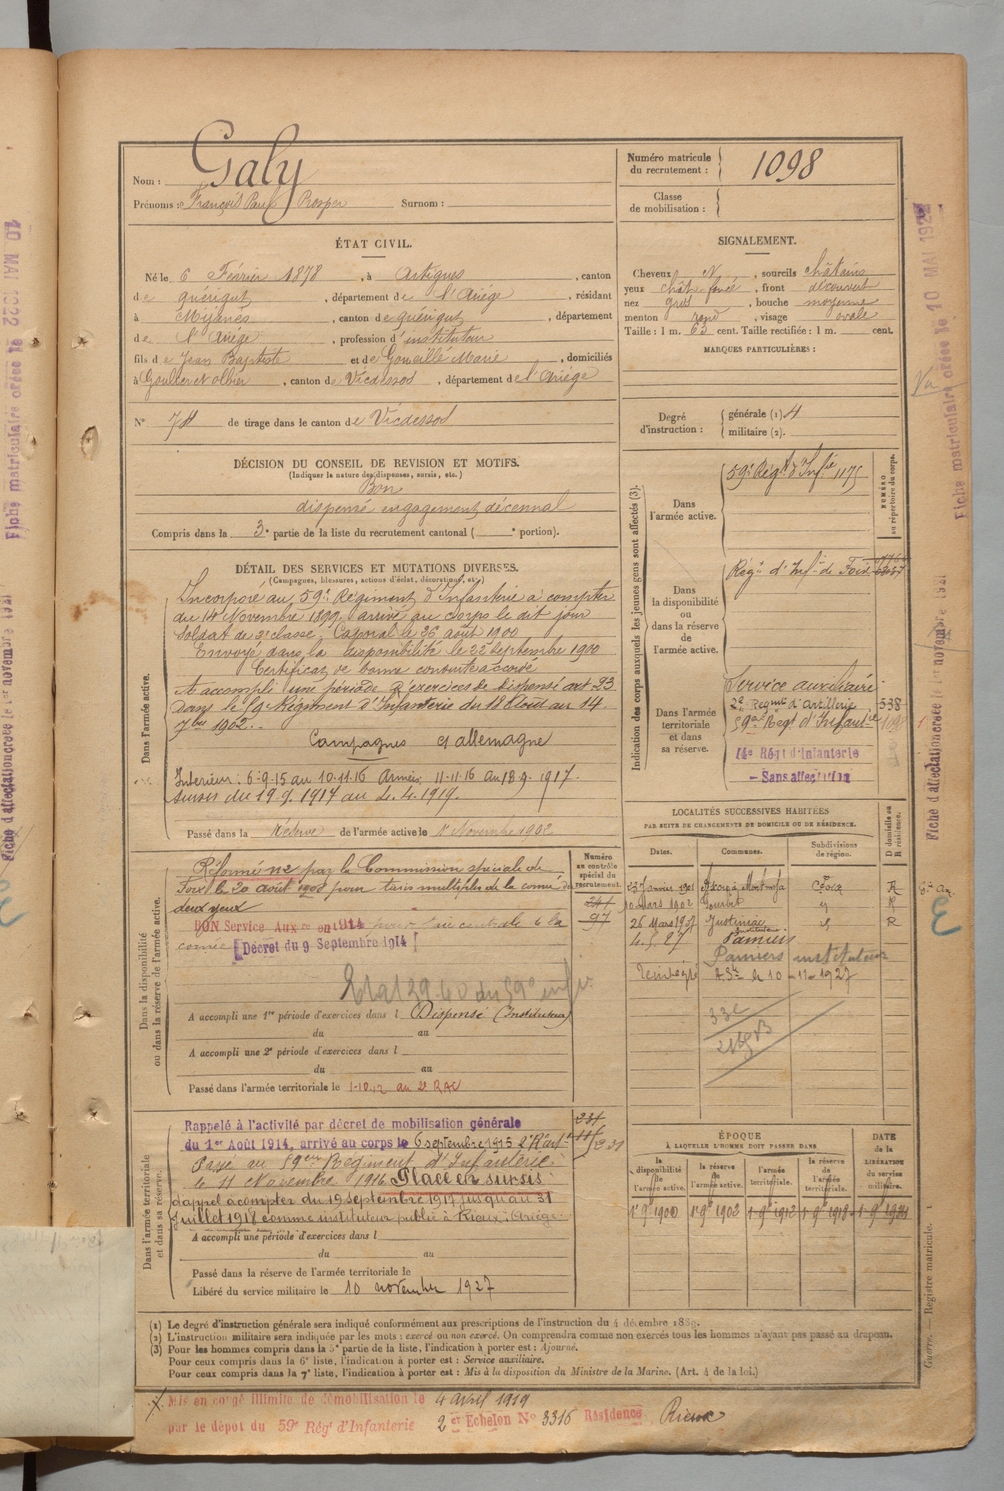 Nom : Galy
Prénoms : François Paul Prosper Surnom :
Numéro matricule du recrutement : 1098
Classe de mobilisation :
ÉTAT CIVIL.
Né le 6 Février 1878, à Artigues, canton
de Quérigut, département de l'Ariège, résidant
à Mijanès, canton de Quérigut, département
de l'Ariège, profession d'instituteur
fils de Jean Baptiste et de Marie, domiciliés
à Goulier et Olbier, canton de Vicdessos, département de l'Ariège
N° 78 de tirage dans le canton de Vicdessos
SIGNALEMENT.
Cheveux N, sourcils châtains
yeux chât. foncé, front découvert
nez gros, bouche moyenne
menton rond, visage ovale
Taille : 1 m. 63 cent. Taille rectifiée : 1 m. cent.
MARQUES PARTICULIÈRES :
Degré d'instruction : générale (1) 4
militaire (2).
DÉCISION DU CONSEIL DE REVISION ET MOTIFS.
(Indiquer la nature des dispenses, sursis, etc.)
Bon
dispensé engagement décennal
Compris dans la 3e partie de la liste du recrutement cantonal ( e portion).
DÉTAIL DES SERVICES ET MUTATIONS DIVERSES.
(Campagnes, blessures, actions d'éclat, décorations, etc.)
Dans l'armée active.
Incorporé au 59e Régiment d'Infanterie à compter
du 14 Novembre 1899, arrivé au corps le dit jour
Soldat de 2e classe. Caporal le 26 août 1900
Envoyé dans la disponibilité le 22 Septembre 1900
Certificat de bonne conduite accordé
A accompli une période d'exercices de dispensé art 23
dans le 59e Régiment d'Infanterie du 18 Août au 14
7bre 1902.
Campagnes Ct allemagne
Interieur : 6-9-15 au 10-11-16 Armées 11-11-16 au 18-9-1917.
Sursis du 19.9.1917 au 4.4.1919.
Passé dans la réserve de l'armée active le 1er Novembre 1902
Indication des corps auxquels les jeunes gens sont affectés (3).
NUMÉRO au répertoire du corps.
Dans l'armée active. 59e Régt d'Infie 1175
Dans la disponibilité ou dans la réserve de l'armée active. Régt d'Infie de Foix
Dans l'armée territoriale et dans sa réserve.
Service auxiliaire
2e Régiment d'Artillerie 538
59e Régt d'Infantie
14e Régt d'Infanterie
– Sans affectation
Dans la disponibilité ou dans la réserve de l'armée active.
Numéro au contrôle spécial du recrutement.
Réformé n°2 par la Commission spéciale de
Foix le 20 août 1908 pour taies multiples de la cornée des
deux yeux
97
BON Service Auxre en 1914 pour taie centrale de la
cornée [Décret du 9 Septembre 1914]
A accompli une 1re période d'exercices dans l Dispensé (Instituteur)
du au
A accompli une 2e période d'exercices dans l
du au
Passé dans l'armée territoriale le 1-10.12 au 2e RAC
LOCALITÉS SUCCESSIVES HABITÉES
PAR SUITE DE CHANGEMENTS DE DOMICILE OU DE RÉSIDENCE.
Dates. Communes. Subdivisions de région. D domicile ou R résidence.
23 Janvier 1901 Foix R
10 Mars 1902 Gourbit R
26 Mars 1907 R
4.5.27 Pamiers
Pamiers instituteur
10-11-1927
Dans l'armée territoriale et dans sa réserve.
Rappelé à l'activité par décret de mobilisation générale
du 1er Août 1914, arrivé au corps le 6 septembre 1915
Passé au 59ème Régiment d'Infanterie
le 11 Novembre 1916 Placé en sursis
d'appel à compter du 19 septembre 1917 jusqu'au 31
Juillet 1918 comme instituteur public à Rieux, Ariège.
A accompli une période d'exercices dans l
du au
Passé dans la réserve de l'armée territoriale le
Libéré du service militaire le 10 novembre 1927
ÉPOQUE
À LAQUELLE L'HOMME DOIT PASSER DANS
la disponibilité de l'armée active. la réserve de l'armée active. l'armée territoriale. la réserve de l'armée territoriale. DATE de la LIBÉRATION du service militaire.
1er 9bre 1900 1er 9bre 1902 1er 9bre 1912 1er 9bre 1918 1er 9bre 1924
(1) Le degré d'instruction générale sera indiqué conformément aux prescriptions de l'instruction du 4 décembre 1889.
(2) L'instruction militaire sera indiquée par les mots : exercé ou non exercé. On comprendra comme non exercés tous les hommes n'ayant pas passé au drapeau.
(3) Pour les hommes compris dans la 5e partie de la liste, l'indication à porter est : Ajourné.
Pour ceux compris dans la 6e liste, l'indication à porter est : Service auxiliaire.
Pour ceux compris dans la 7e liste, l'indication à porter est : Mis à la disposition du Ministre de la Marine. (Art. 4 de la loi.)
Guerre. — Registre matricule. 1
Mis en congé illimité de démobilisation le 4 Avril 1919
par le dépôt du 59e Rég d'Infanterie 2e Echelon N° 3316 Résidence Rieux
Fiche matriculaire créée le 10 MAI 1922
Fiche d'affectation créée le 1er novembre 1921
Fiche matriculaire créée le 10 MAI 1922
Fiche d'affectation créée le 1er novembre 1921